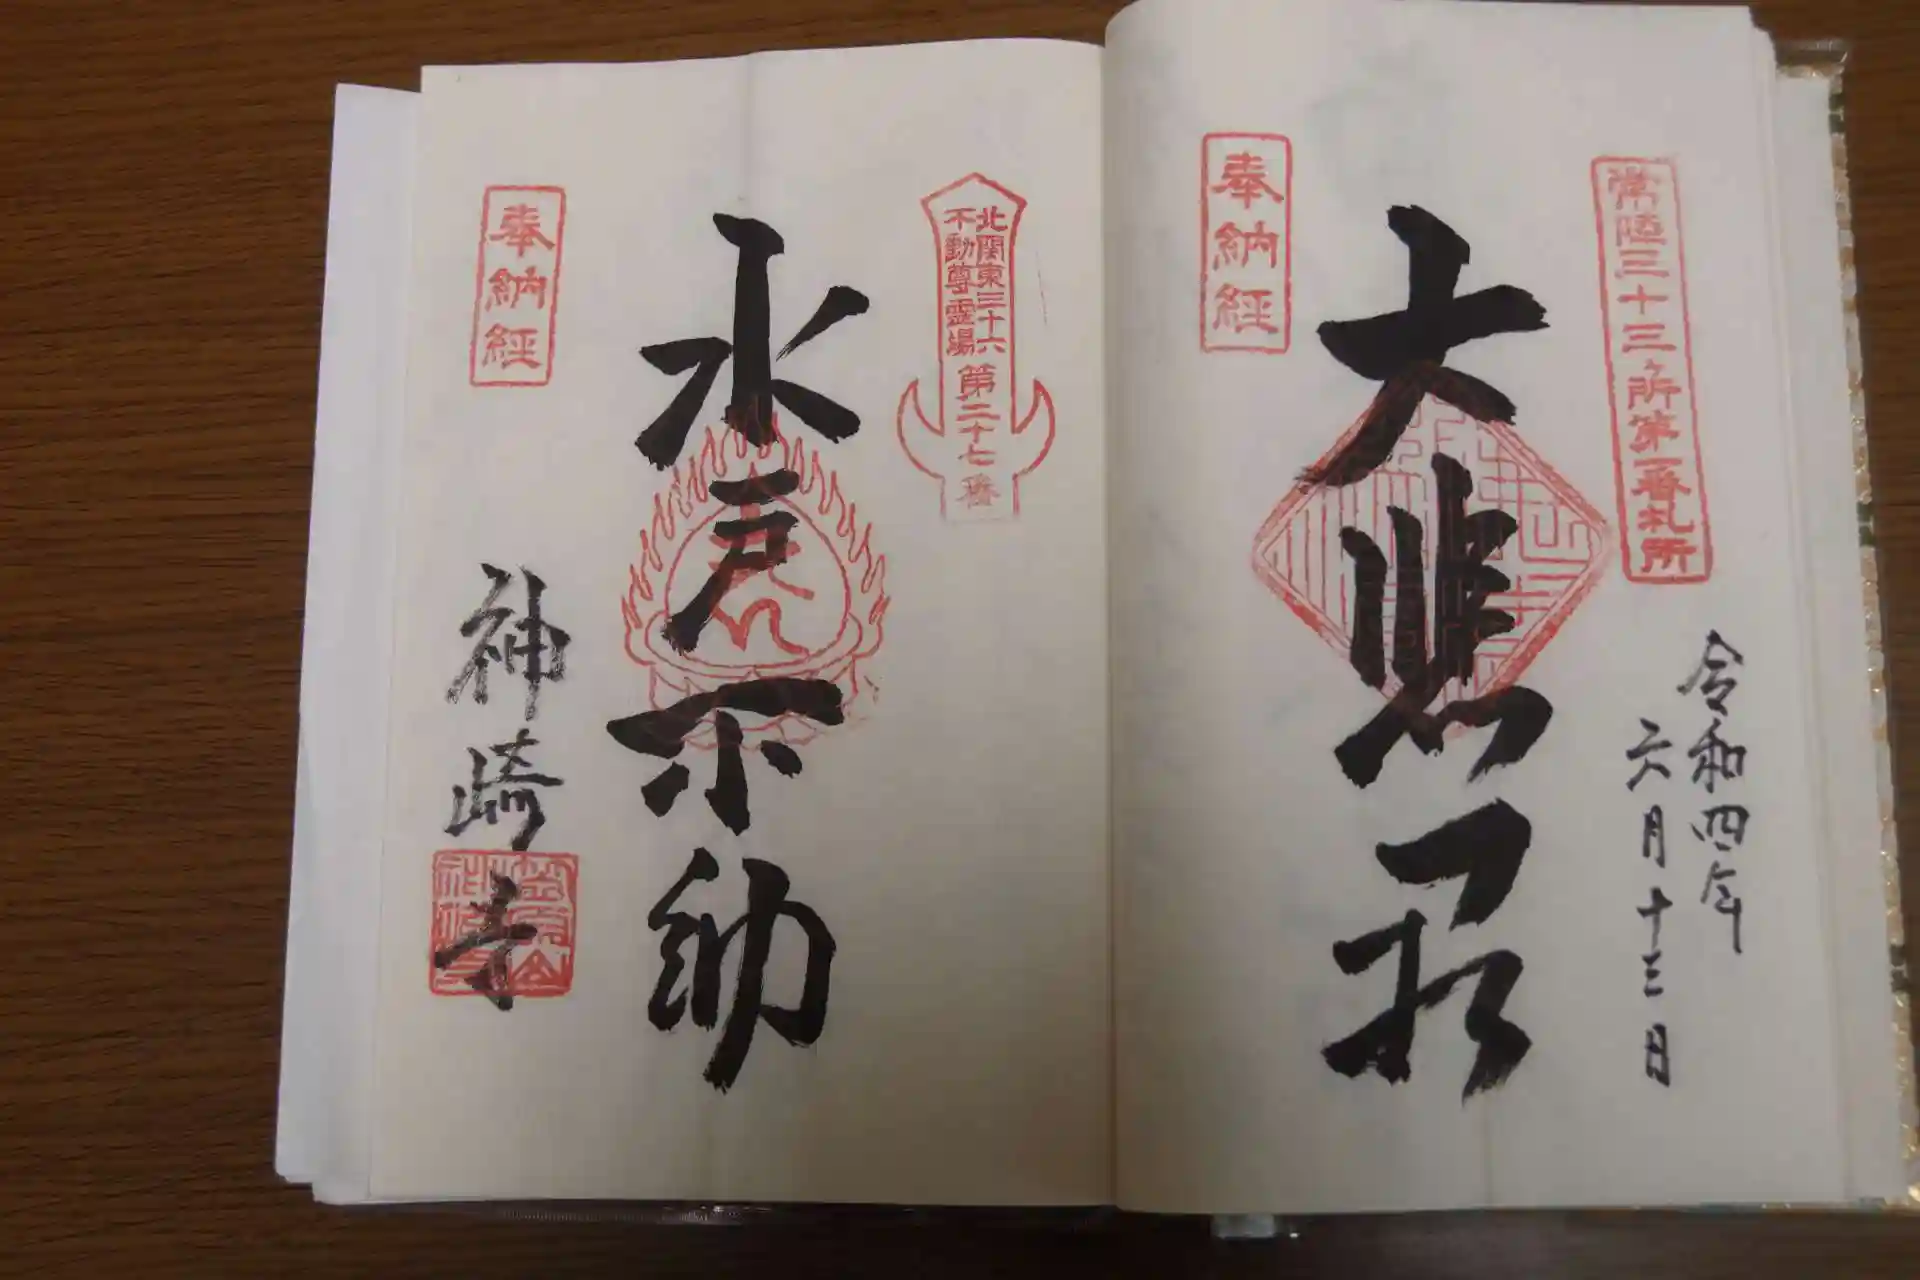 常陸三十三ヶ所第一番札所
令和四年
六月十三日
奉納経
大悲殿
北関東三十六
不動尊霊場
第二十七番
水戸不動
奉納経
神崎寺